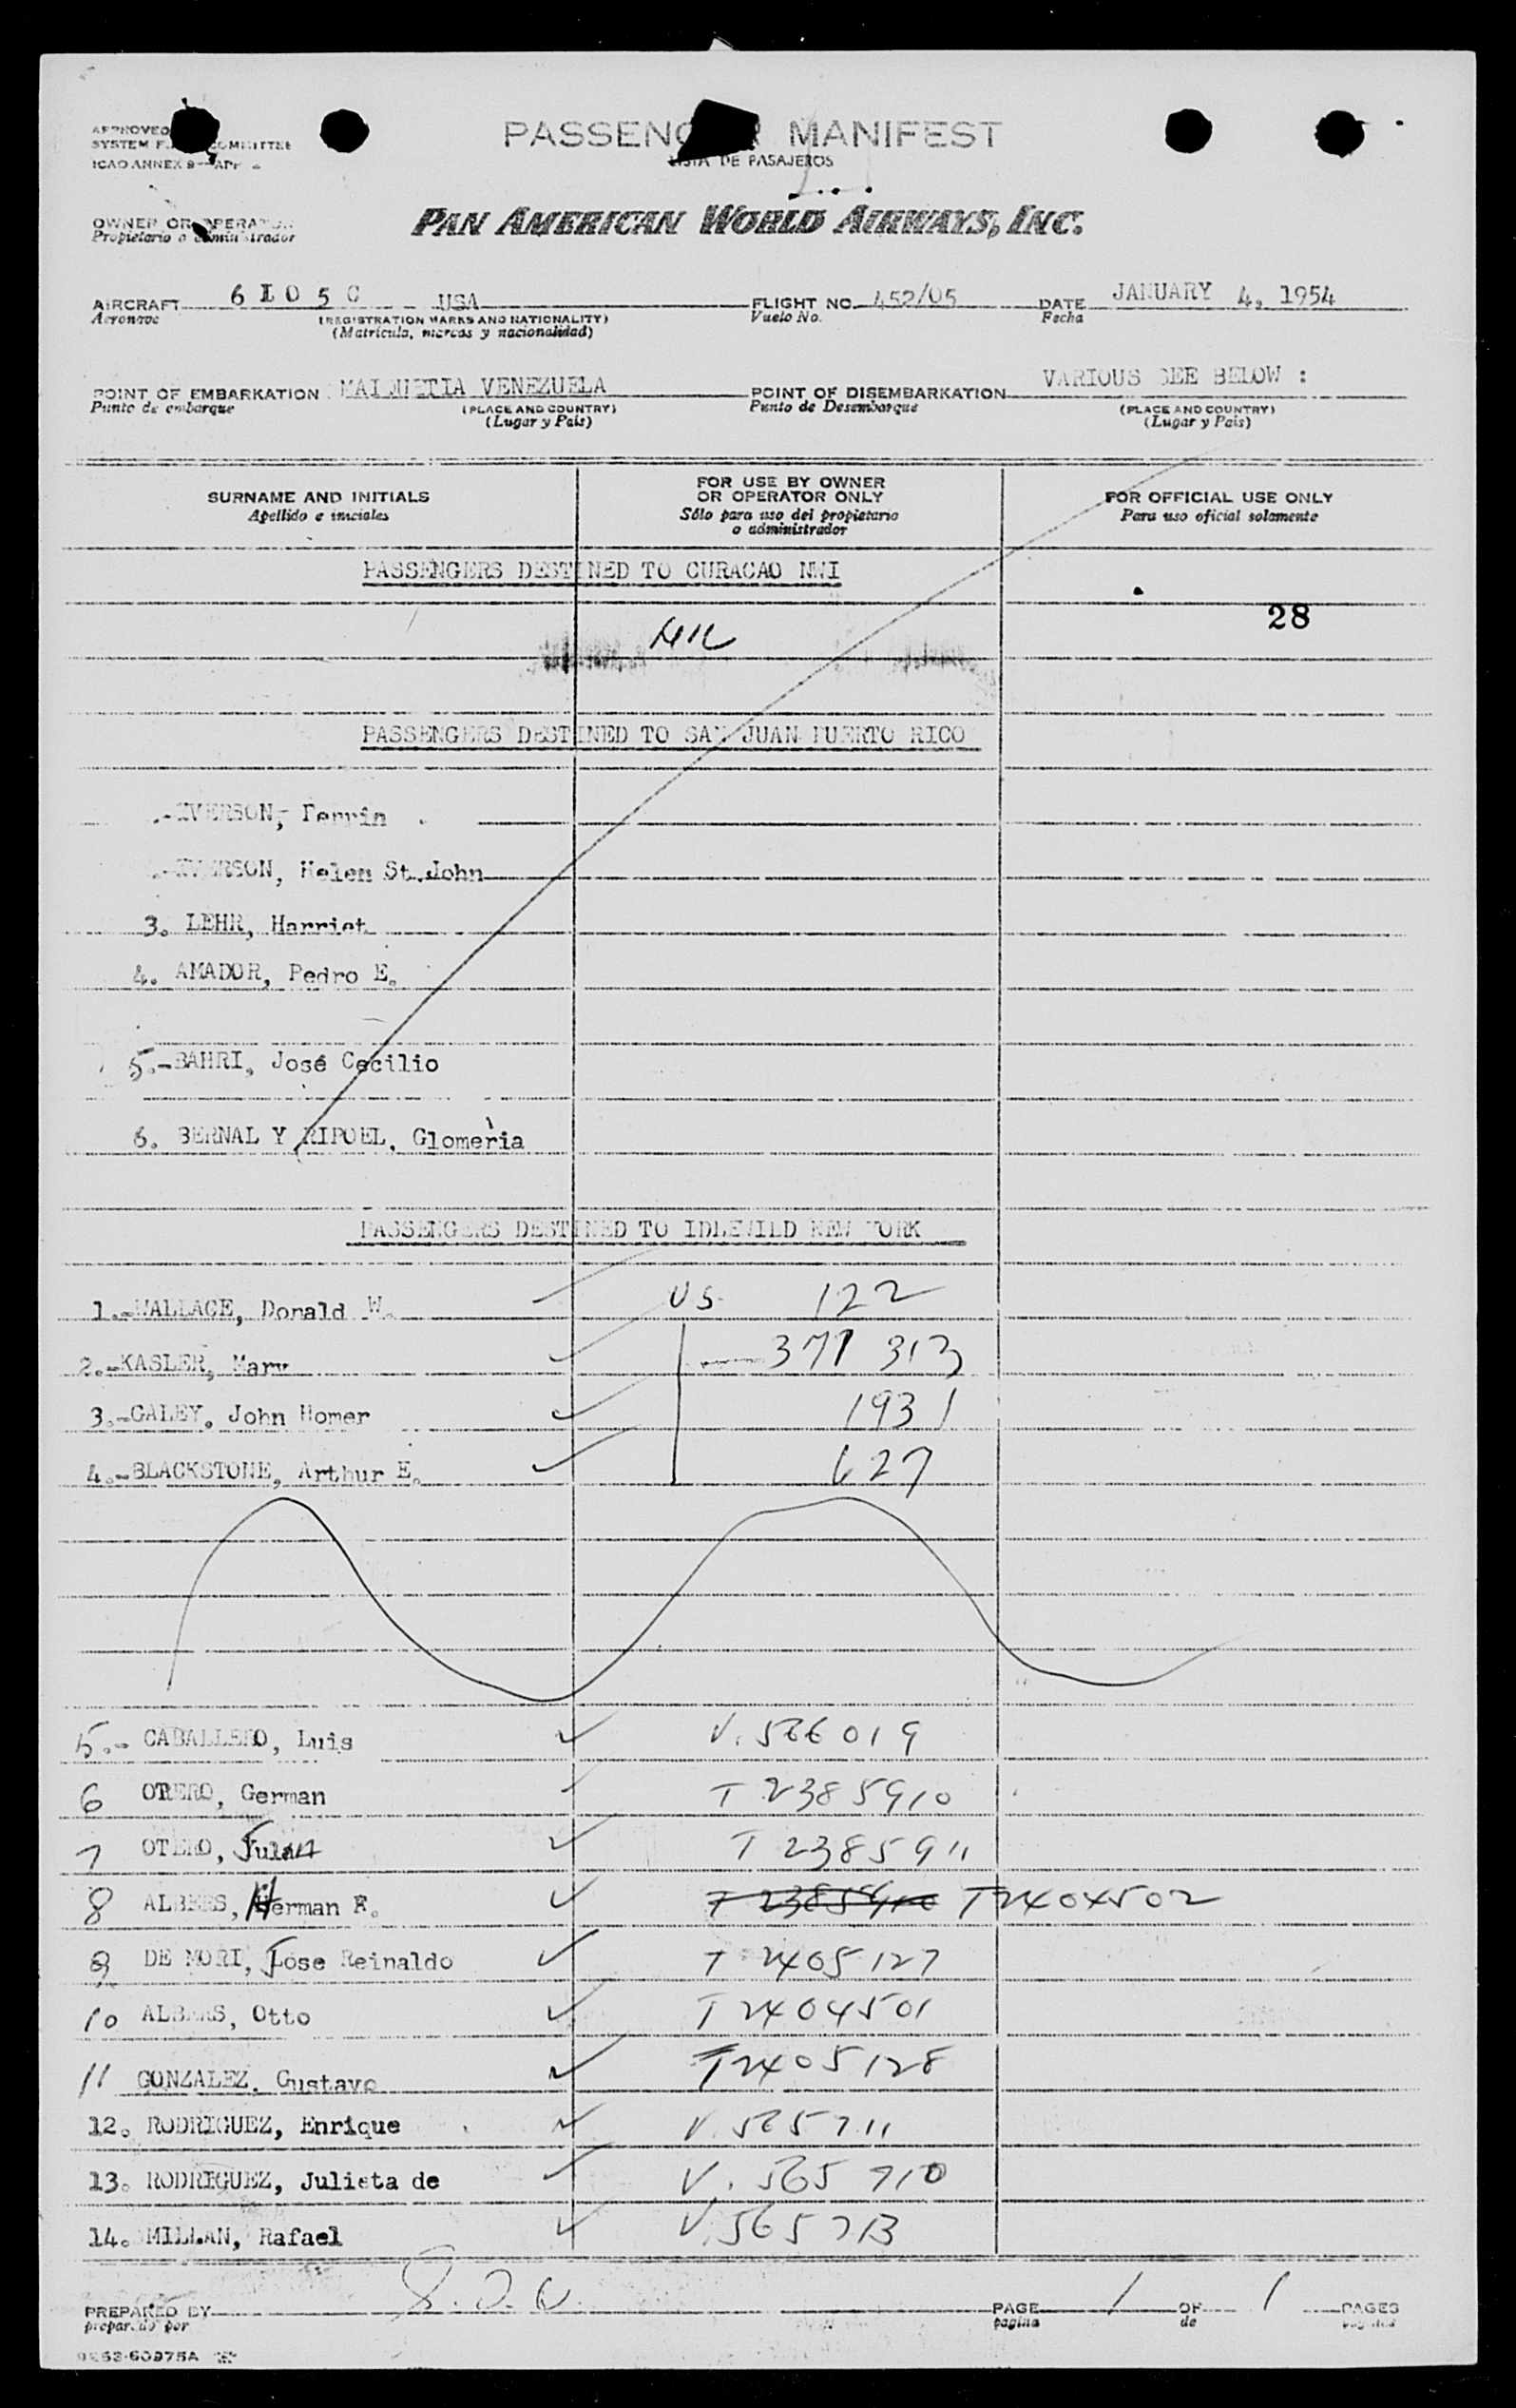 PASSENGER MANIFEST
LISTA DE PASAJEROS
APPROVED
SYSTEM COMMITTEE
ICAO ANNEX 9
OWNER OR OPERATOR
Propietario o administrador
PAN AMERICAN WORLD AIRWAYS, INC.
AIRCRAFT 6 1 0 5 C USA FLIGHT NO. 452/05 DATE JANUARY 4, 1954
Aeronave (REGISTRATION MARKS AND NATIONALITY) Vuelo No. Fecha
(Matricula, marcas y nacionalidad)
POINT OF EMBARKATION MAIQUETIA VENEZUELA POINT OF DISEMBARKATION VARIOUS SEE BELOW :
Punto de embarque (PLACE AND COUNTRY) Punto de Desembarque (PLACE AND COUNTRY)
(Lugar y País) (Lugar y País)
SURNAME AND INITIALS FOR USE BY OWNER OR OPERATOR ONLY FOR OFFICIAL USE ONLY
Apellido e iniciales Sólo para uso del propietario o administrador Para uso oficial solamente
PASSENGERS DESTINED TO CURACAO NWI
28
NIL
PASSENGERS DESTINED TO SAN JUAN PUERTO RICO
.-IVERSON,
.-IVERSON, Helen St.John
3. LEHR, Harriet
4. AMADOR, Pedro E.
5.-BAHRI, José Cecilio
6. BERNAL Y RIPOEL, Glomeria
PASSENGERS DESTINED TO IDLEWILD NEW YORK
1.-WALLACE, Donald W. US 122
2.-KASLER, Mary 371 313
3.-GALEY, John Homer 1931
4.-BLACKSTONE, Arthur E. 627
5.- CABALLERO, Luis V. 566019
6 OTERO, German T 2385910
7 OTERO, Julan T 2385911
8 ALBERS, Herman F. T 2385910 T2404502
9 DE MORI, Jose Reinaldo T 2405127
10 ALBERS, Otto T 2404501
11 GONZALEZ, Gustavo T2405128
12. RODRIGUEZ, Enrique V. 565711
13. RODRIGUEZ, Julieta de V. 565 710
14. MILLAN, Rafael V. 565713
PREPARED BY PAGE 1 OF 1 PAGES
preparado por pagina de